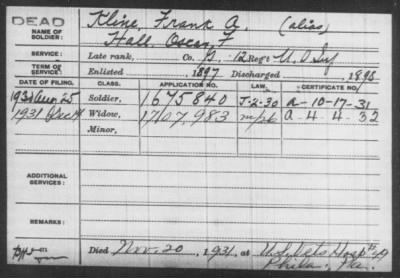 DEAD
NAME OF SOLDIER: Kline, Frank A. (alias)
Hall, Oscar, F
SERVICE: Late rank, Co. B, 12 Reg't U.S Inf
TERM OF SERVICE: Enlisted 1897 Discharged 1898
DATE OF FILING. CLASS. APPLICATION NO. LAW. CERTIFICATE NO.
1930 Aug 25 Soldier, 1675840 J-2-30 A-10-17-31
1931 Dec 14 Widow, 1707,983 A-4-4-32
Minor,
ADDITIONAL SERVICES:
REMARKS:
Died Nov. 20, 1931, at U.S. Vets Hosp # 49
Phila., Pa.